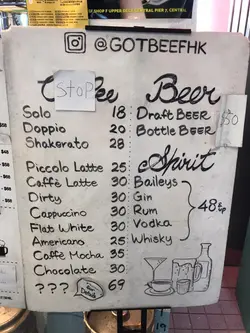 @GOTBEEFHK
Stop
Solo 18
Doppio 20
Shakerato 28
Piccolo Latte 25
Caffè Latte 30
Dirty 30
Cappuccino 30
Flat White 30
Americano 25
Caffè Mocha 35
Chocolate 30
??? 69
Beer
Draft BEER
Bottle BEER
Spirit
Baileys
Gin
Rum
Vodka
Whisky
48